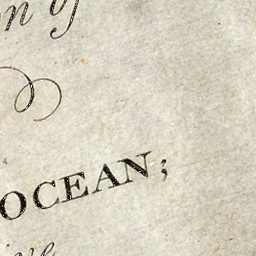 on of
OCEAN;
ive